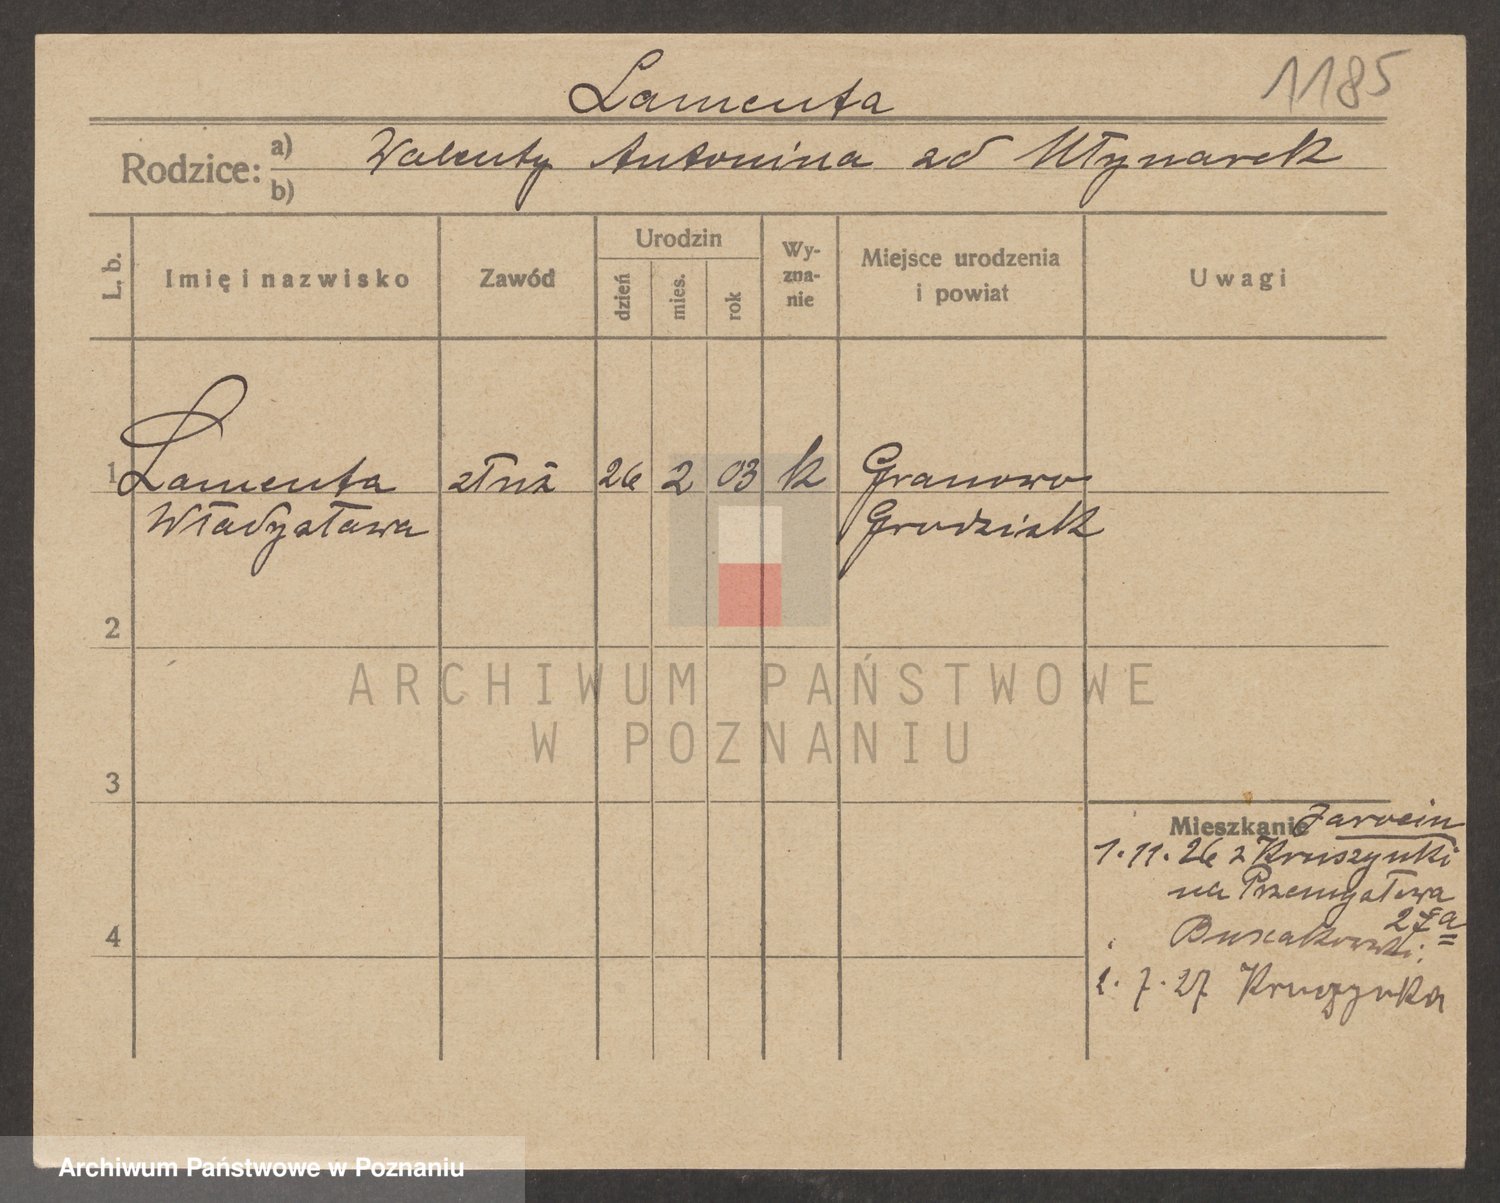 Lamenta
1185
Rodzice: a) Walenty Antonina zd Młynarek
b)
L. b.
Imię i nazwisko
Zawód
Urodzin
dzień
mies.
rok
Wy-
zna-
nie
Miejsce urodzenia
i powiat
Uwagi
1 Lamenta służ 26 2 03 k Granowo
Władysława Grodzisk
2
ARCHIWUM PAŃSTWOWE
W POZNANIU
3
Mieszkanie Jarocin
1.11.26 z Kruszynki
na Przemysłowa
27a
4
1.7.27 Kruszynka
Archiwum Państwowe w Poznaniu